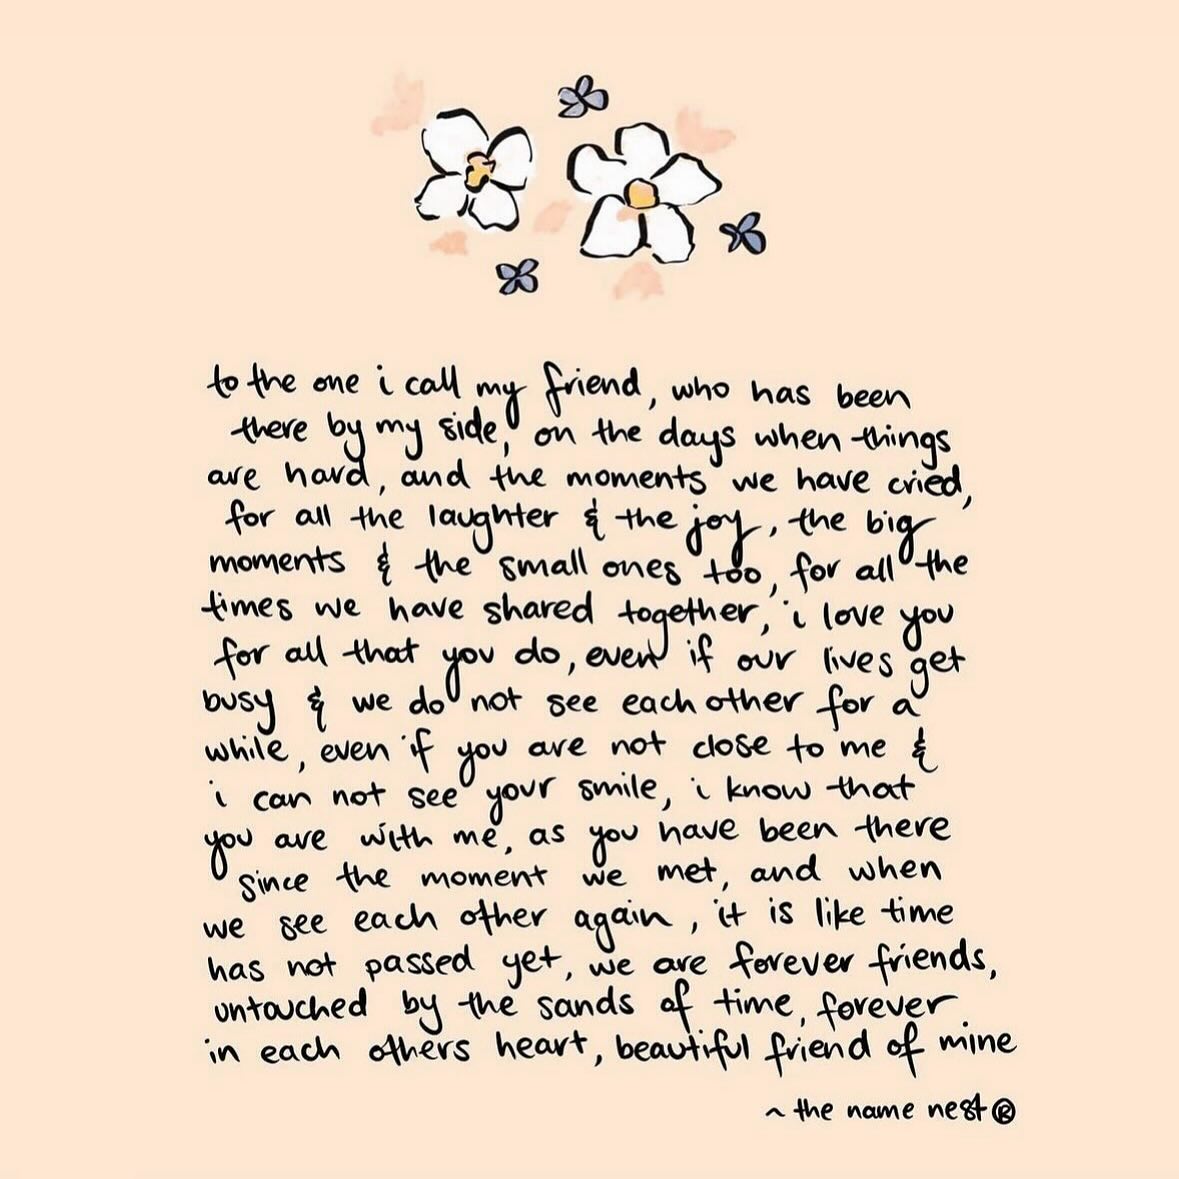 to the one i call my friend, who has been
there by my side, on the days when things
are hard, and the moments we have cried,
for all the laughter & the joy, the big
moments & the small ones too, for all the
times we have shared together, i love you
for all that you do, even if our lives get
busy & we do not see each other for a
while, even if you are not close to me &
i can not see your smile, i know that
you are with me, as you have been there
since the moment we met, and when
we see each other again, it is like time
has not passed yet, we are forever friends,
untouched by the sands of time, forever
in each others heart, beautiful friend of mine
~ the name nest®